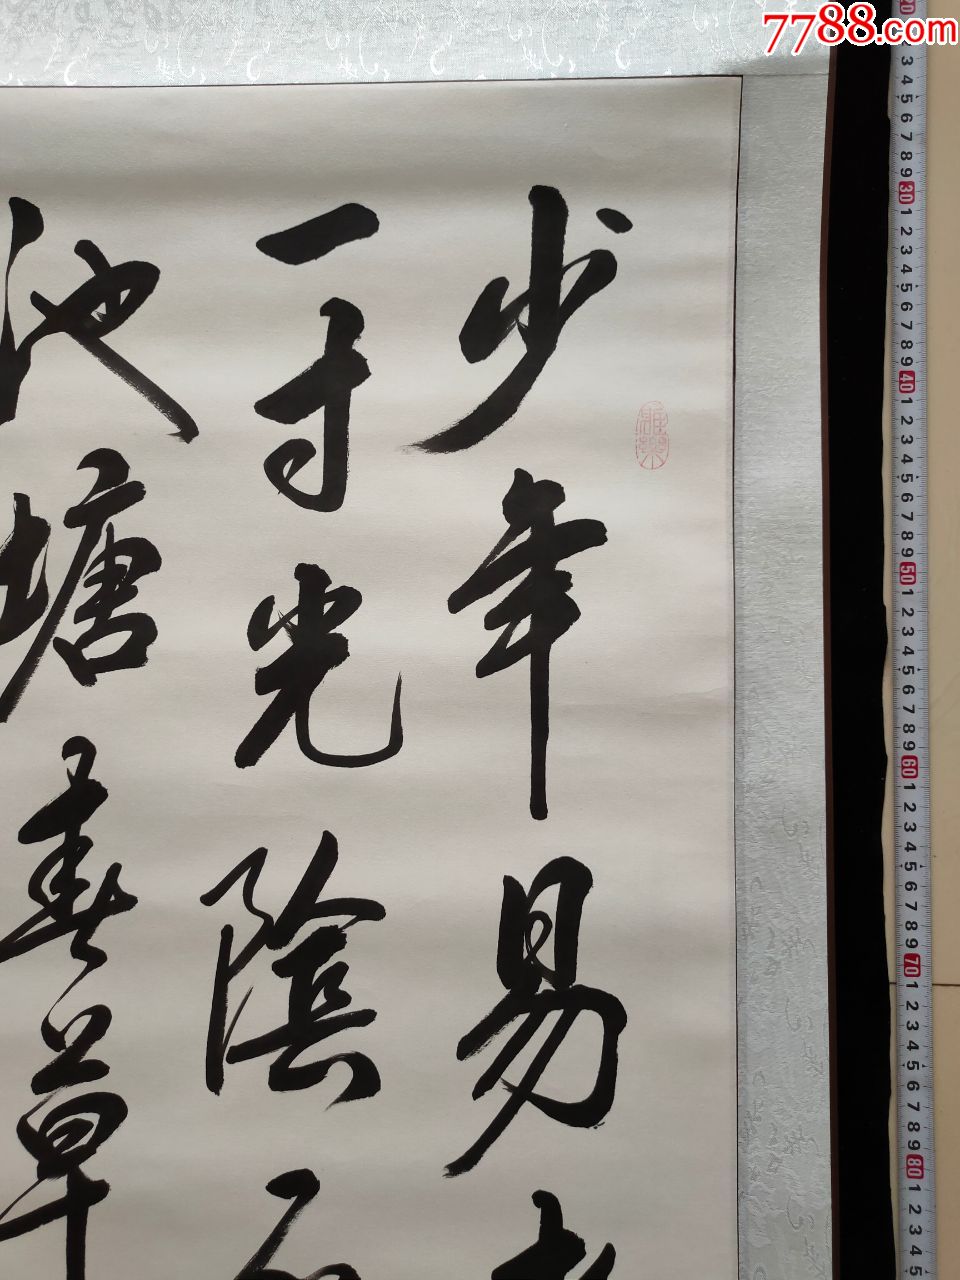 7788.com
少年易
一寸光陰不
池塘春草
雅樂
20
3 4 5 6 7 8 9 30 1 2 3 4 5 6 7 8 9 40 1 2 3 4 5 6 7 8 9 50 1 2 3 4 5 6 7 8 9 60 1 2 3 4 5 6 7 8 9 70 1 2 3 4 5 6 7 8 9 80 1 2 3 4 5